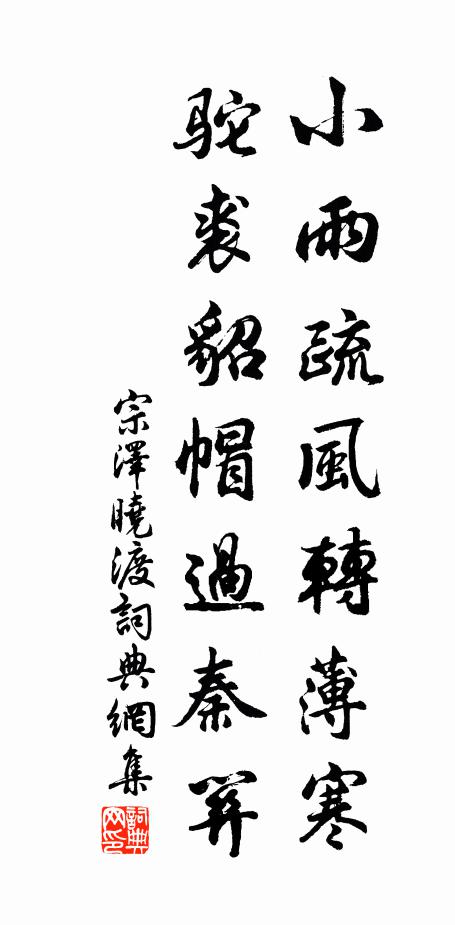 小雨疏風轉薄寒
駝裘貂帽過秦關
宗澤曉渡詞典網集
詞典
网印